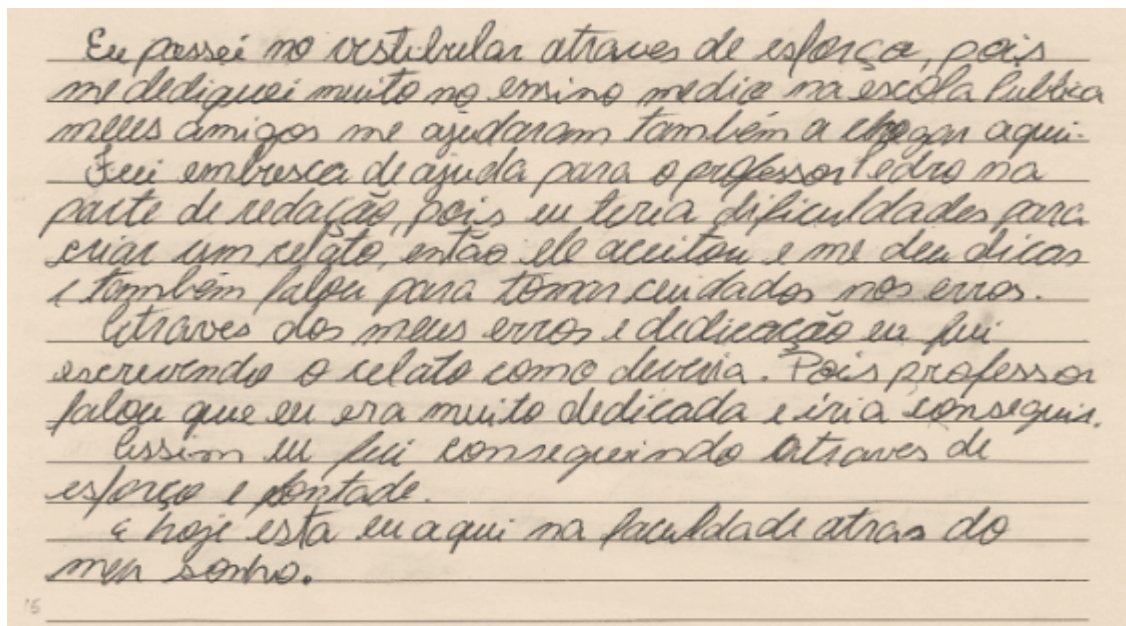 Eu passei no vestibular atraves de esforço, pois
me dediquei muito no ensino medio na escola Publica
meus amigos me ajudaram também a chegar aqui.
Fui embusca de ajuda para o professor Pedro na
parte de redação, pois eu teria dificuldades para
criar um relato, então ele aceitou e me deu dicas
e também falou para tomar cuidados nos erros.
Atraves dos meus erros e dedicação eu fui
escrevendo o relato como deveria. Pois professor
falou que eu era muito dedicada e iria conseguir.
Assim eu fui conseguindo atraves de
esforço e vontade.
E hoje esta eu aqui na faculdade atras do
meu sonho.
15